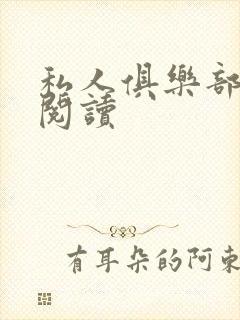 私人俱樂部
閱讀
有耳朵的阿東